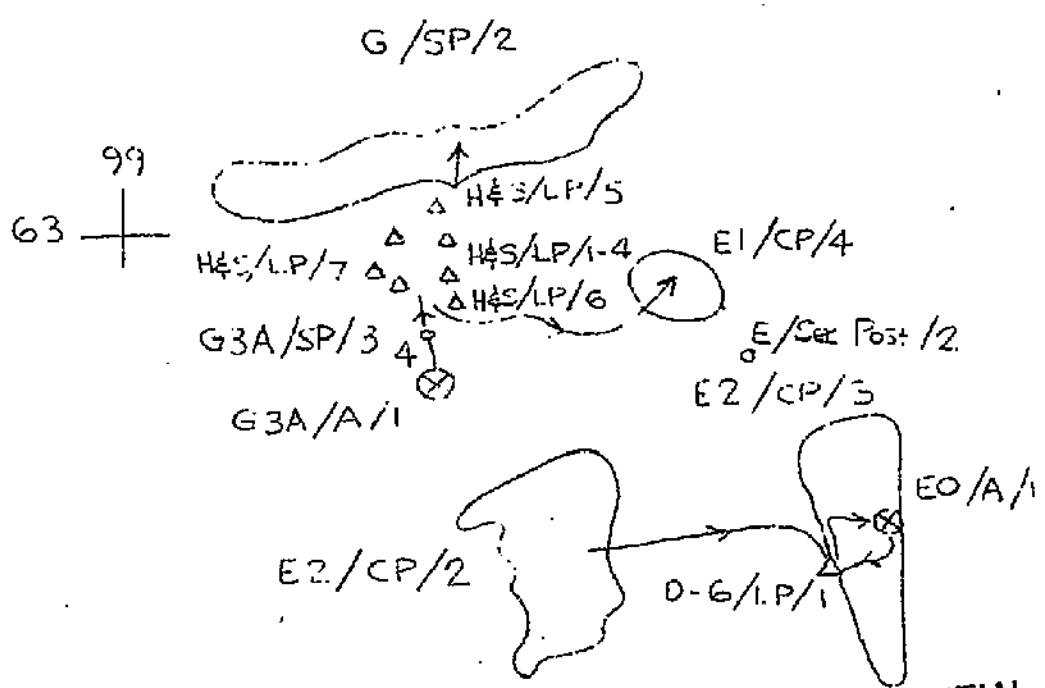 G/SP/2
99
63
H&S/LP/5
H&S/LP/7
H&S/LP/1-4
H&S/LP/6
E1/CP/4
G3A/SP/3
4
E/Sec Post/2
E2/CP/3
G3A/A/1
E0/A/1
E2/CP/2
D-6/LP/1